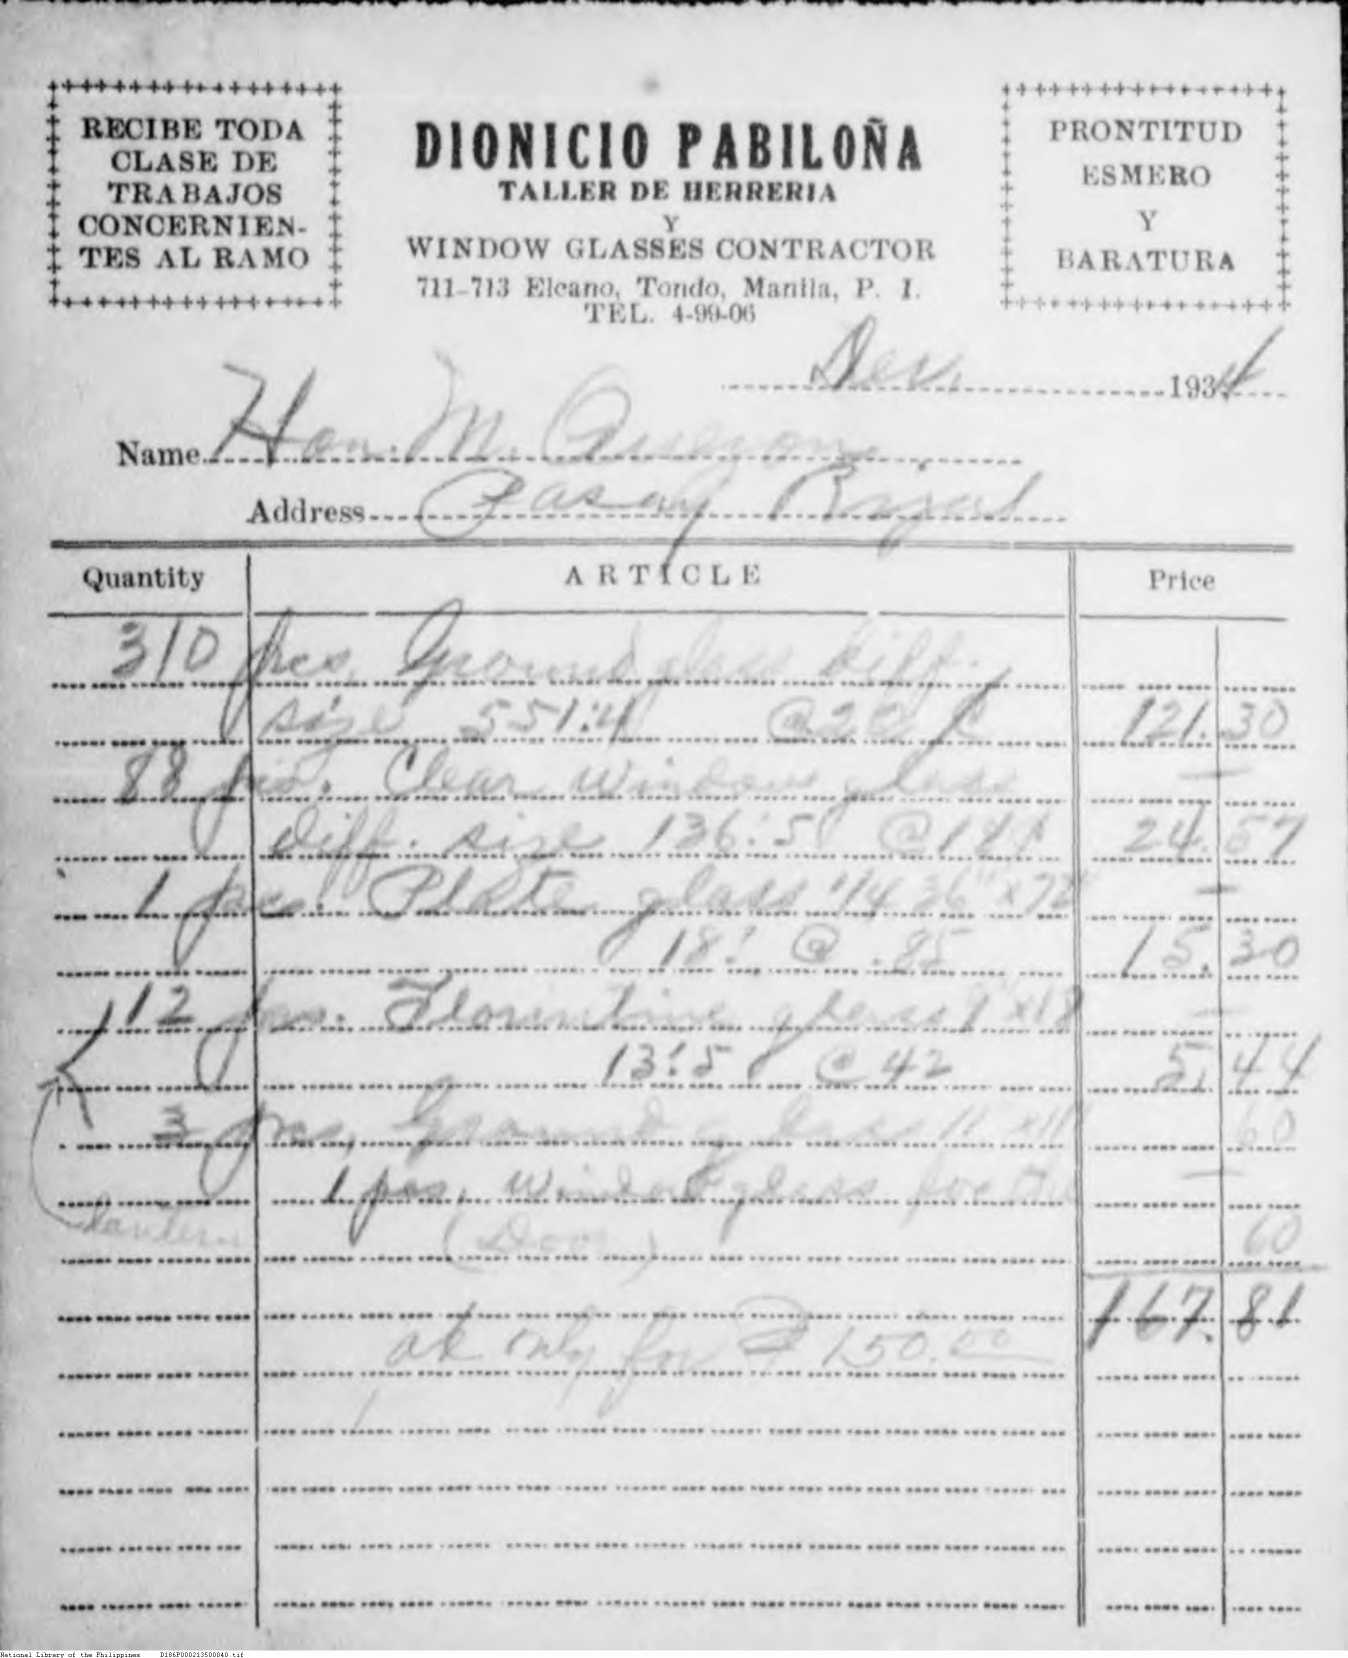 RECIBE TODA
CLASE DE
TRABAJOS
CONCERNIEN-
TES AL RAMO
DIONICIO PABILOÑA
TALLER DE HERRERIA
Y
WINDOW GLASSES CONTRACTOR
711-713 Elcano, Tondo, Manila, P. I.
TEL. 4-99-06
PRONTITUD
ESMERO
Y
BARATURA
1934
Name Hon. M. Quezon
Address Pasay Rizal
Quantity ARTICLE Price
310 pcs. Ground glass diff.
size 551:4 @ 22 ¢ 121.30
88 pcs. Clear window glass
diff. size 136:5 @ 24.57
1 pcs. Plate glass 1/4 36" x 72"
18: @ .85 15.30
12 pcs. Florentine glass 9" x 18
13:5 @ 42 5.44
3 pcs. Ground glass 60
1 pcs. window glass for the
(Door) 60
167.81
ok only for ₱ 150.00
National Library of the Philippines D186P000213500040.tif